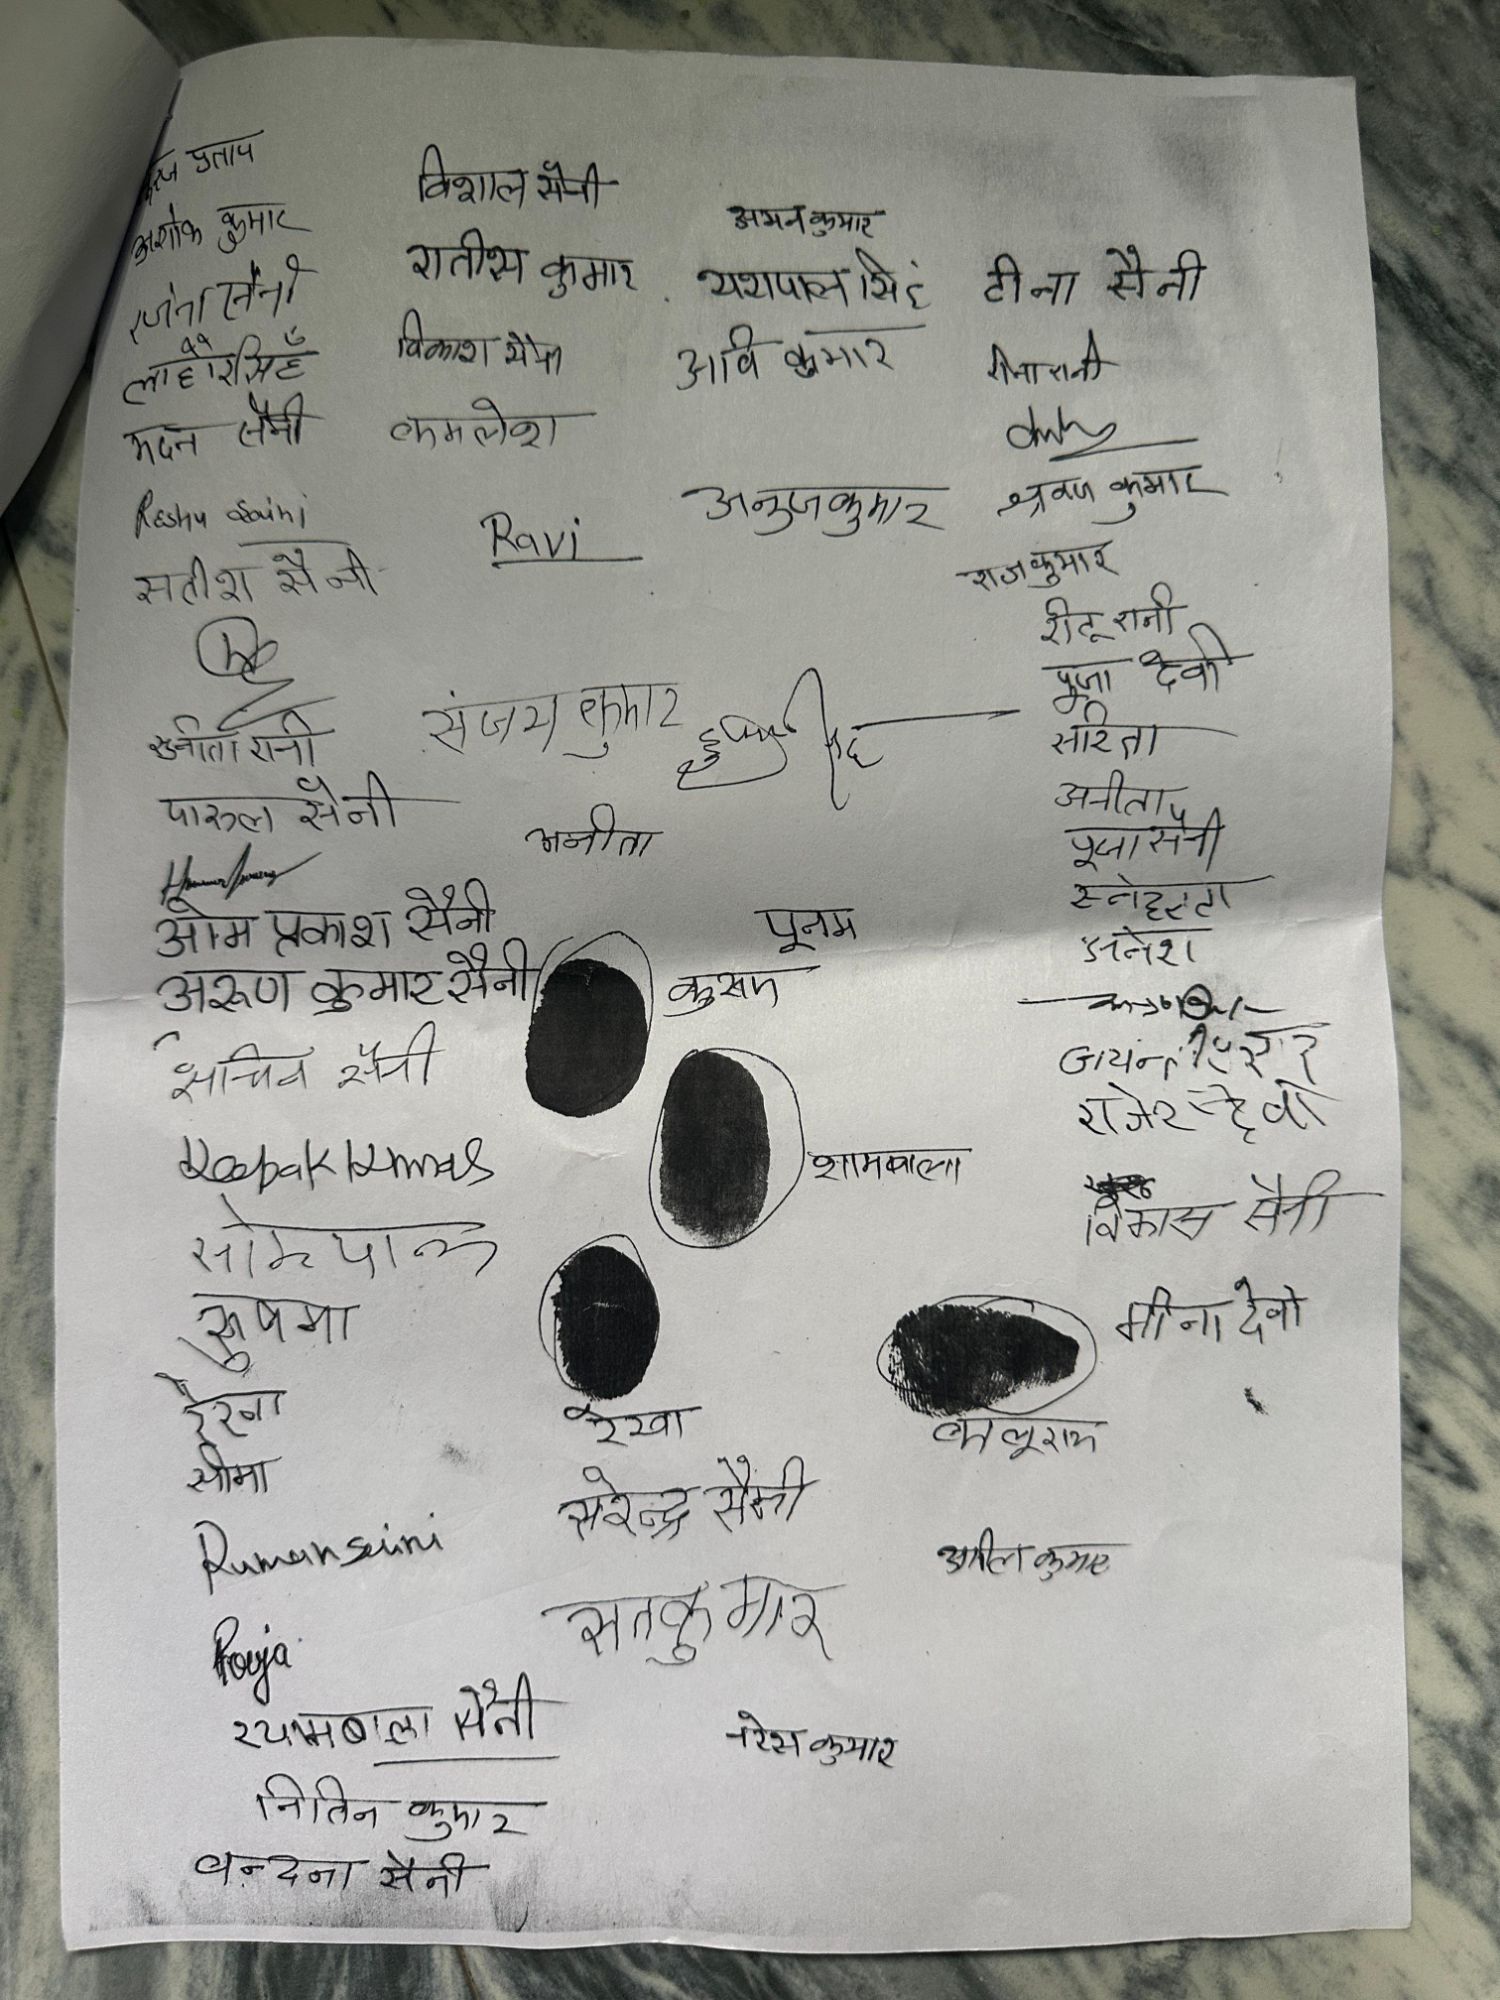 प्रताप
अशोक कुमार
सैनी
लाहौर सिहँ
मदन सैनी
Reshu Saini
सतीश सैनी
सुनीता रानी
पारुल सैनी
ओम प्रकाश सैनी
अरूण कुमार सैनी
सचिन सैनी
Deepak Kumar
सोमपाल
सुषमा
सीमा
Ruman saini
Pooja
श्यामबाला सैनी
नितिन कुमार
वन्दना सैनी
विशाल सैनी
सतीश कुमार
विकाश सैनी
कमलेश
Ravi
संजय कुमार
अनीता
रेखा
सुरेन्द्र सैनी
सतकुमार
अमन कुमार
यशपाल सिहं
अवि कुमार
अनुज कुमार
पूनम
कुसम
शामबाला
कालूराम
अनिल कुमार
नरेस कुमार
टीना सैनी
रीना रानी
श्रवण कुमार
राजकुमार
रीटू रानी
पूजा देवी
सरिता
अनीता
पूजा सैनी
स्नेहलता
देवी
विकास सैनी
मीना देवी